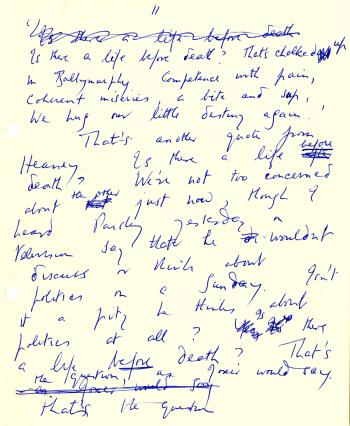 11
'Is there a life before death
Is there a life before death? That's chalked up
in Ballymurphy. Competence with pain,
coherent miseries, a bite and sup,
We hug our little destiny again.'
That's another quote from
Heaney. Is there a life before
death? We're not too concerned
about the other just now, though I
heard Paisley yesterday on
television say that he wouldn't
discuss or think about
politics on a Sunday. Isn't
it a pity he thinks about
politics at all? Is there
a life before death? That's
the question, as Joxer would say.
as Joxer would say
that's the question